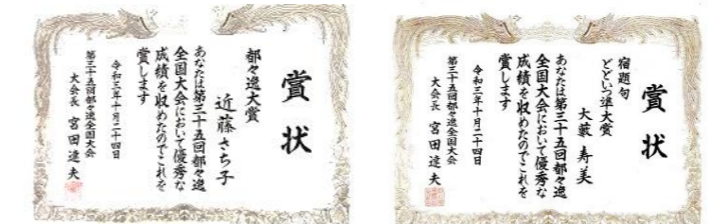 賞状
都々逸大賞
近藤さち子
あなたは第三十五回都々逸
全国大会において優秀な
成績を収めたのでこれを
賞します
令和三年十月二十四日
第三十五回都々逸全国大会
大会長 宮田逹夫
賞状
宿題句
どどいつ準大賞
大薮寿美
あなたは第三十五回都々逸
全国大会において優秀な
成績を収めたのでこれを
賞します
令和三年十月二十四日
第三十五回都々逸全国大会
大会長 宮田逹夫